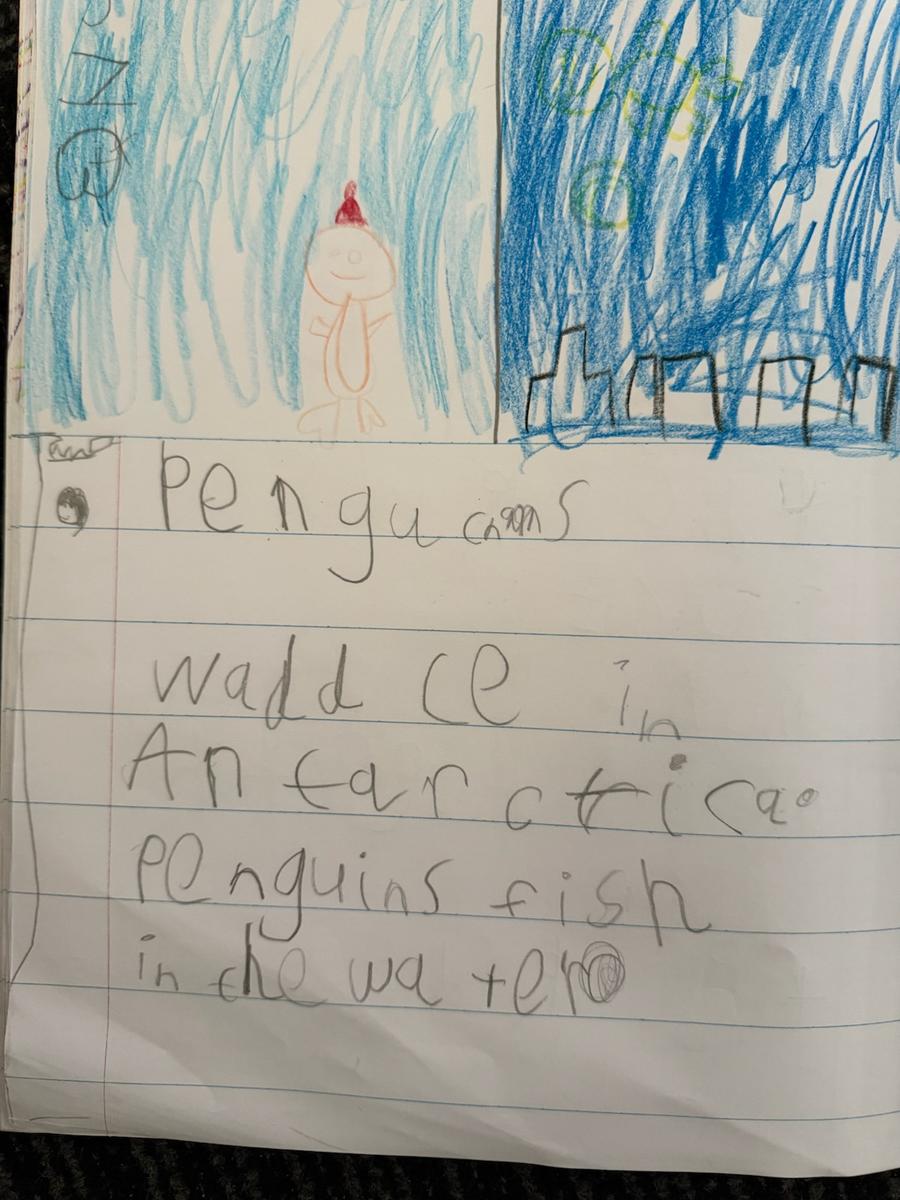 Pengu
waddle in
Antarctica.
Penguins fish
in the water